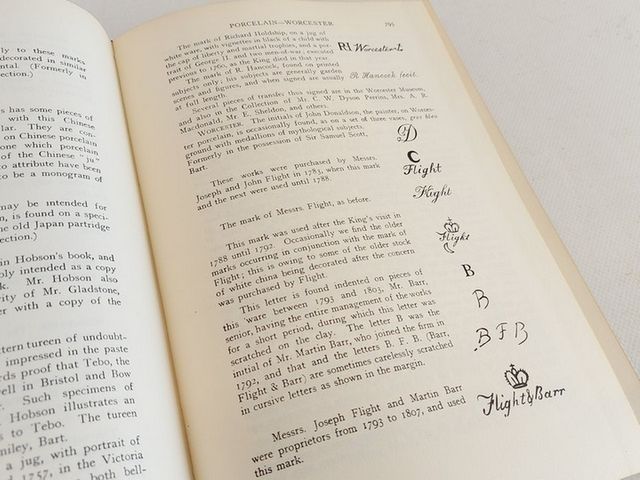 ly to these marks
decorated in similar
ntal. (Formerly in
ection.)
has some pieces of
with this Chinese
lar. They are con-
on Chinese porcelain
one which porcelain
of the Chinese "ju"
to attribute have been
to be a monogram of
may be intended for
n, is found on a speci-
the old Japan partridge
ection.)
in Hobson's book, and
bly intended as a copy
k. Mr. Hobson also
rity of Mr. Gladstone,
er with a copy of the
ttern tureen of undoubt-
impressed in the paste
rds proof that Tebo, the
ell in Bristol and Bow
Such specimens of
Hobson illustrates an
s to Tebo. The tureen
miley, Bart.
a jug, with portrait of
d 1757, in the Victoria
both bell-
PORCELAIN—WORCESTER
795
The mark of Richard Holdship, on a jug of
white ware, with vignettes in black of a child with
the cap of liberty and martial trophies, and a por-
trait of George II. and two men-of-war; executed
previous to 1760, as the King died in that year.
RH Worcester
The mark of R. Hancock, found on printed
subjects only; the subjects are generally garden
scenes and figures, and when signed are usually
at full length.
R Hancock fecit.
Several pieces of transfer thus signed are in the Worcester Museum,
and also in the Collection of Mr. C. W. Dyson Perrins, Mrs. A. R.
Macdonald, Mr. E. Sheldon, and others.
WORCESTER. The initials of John Donaldson, the painter, on Worces-
ter porcelain, is occasionally found, as on a set of three vases, gros bleu
ground with medallions of mythological subjects.
Formerly in the possession of Sir Samuel Scott,
Bart.
D
These works were purchased by Messrs.
Joseph and John Flight in 1783, when this mark
and the next were used until 1788.
C
Flight
The mark of Messrs. Flight, as before.
Flight
This mark was used after the King's visit in
1788 until 1792. Occasionally we find the older
marks occurring in conjunction with the mark of
Flight; this is owing to some of the older stock
of white china being decorated after the concern
was purchased by Flight.
Flight
This letter is found indented on pieces of
this ware between 1793 and 1803, Mr. Barr,
senior, having the entire management of the works
for a short period, during which this letter was
scratched on the clay. The letter B was the
initial of Mr. Martin Barr, who joined the firm in
1792, and that and the letters B. F. B. (Barr
Flight & Barr) are sometimes carelessly scratched
in cursive letters as shown in the margin.
B
B
B F B
Messrs. Joseph Flight and Martin Barr
were proprietors from 1793 to 1807, and used
this mark.
Flight & Barr